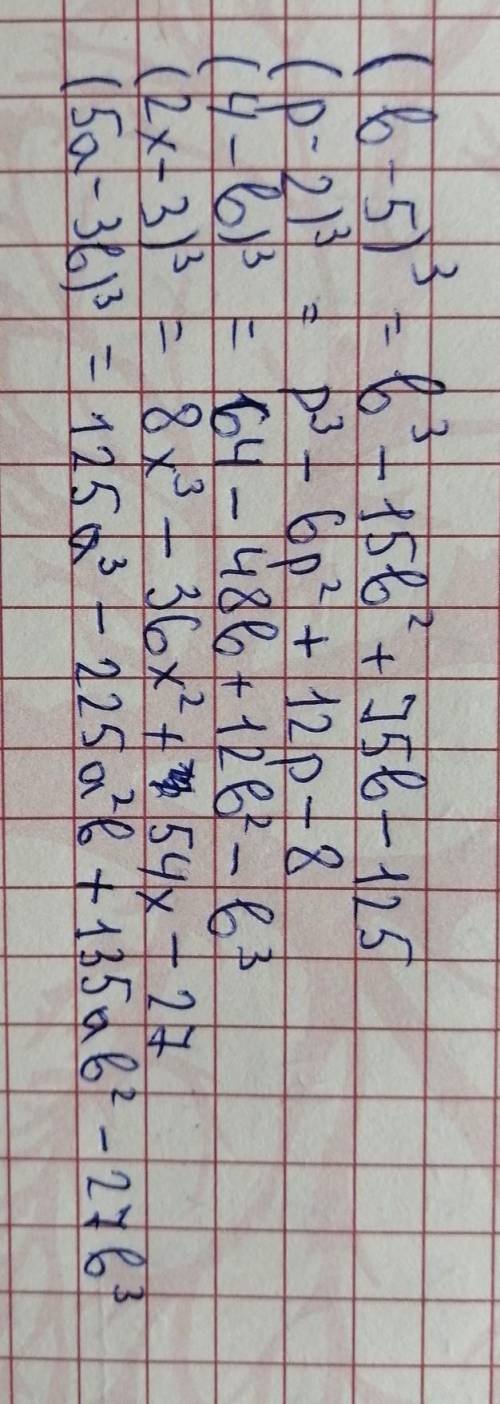 (b-5)³ = b³ - 15b² + 75b - 125
(p-2)³ = p³ - 6p² + 12p - 8
(4-b)³ = 64 - 48b + 12b² - b³
(2x-3)³ = 8x³ - 36x² + 54x - 27
(5a-3b)³ = 125a³ - 225a²b + 135ab² - 27b³